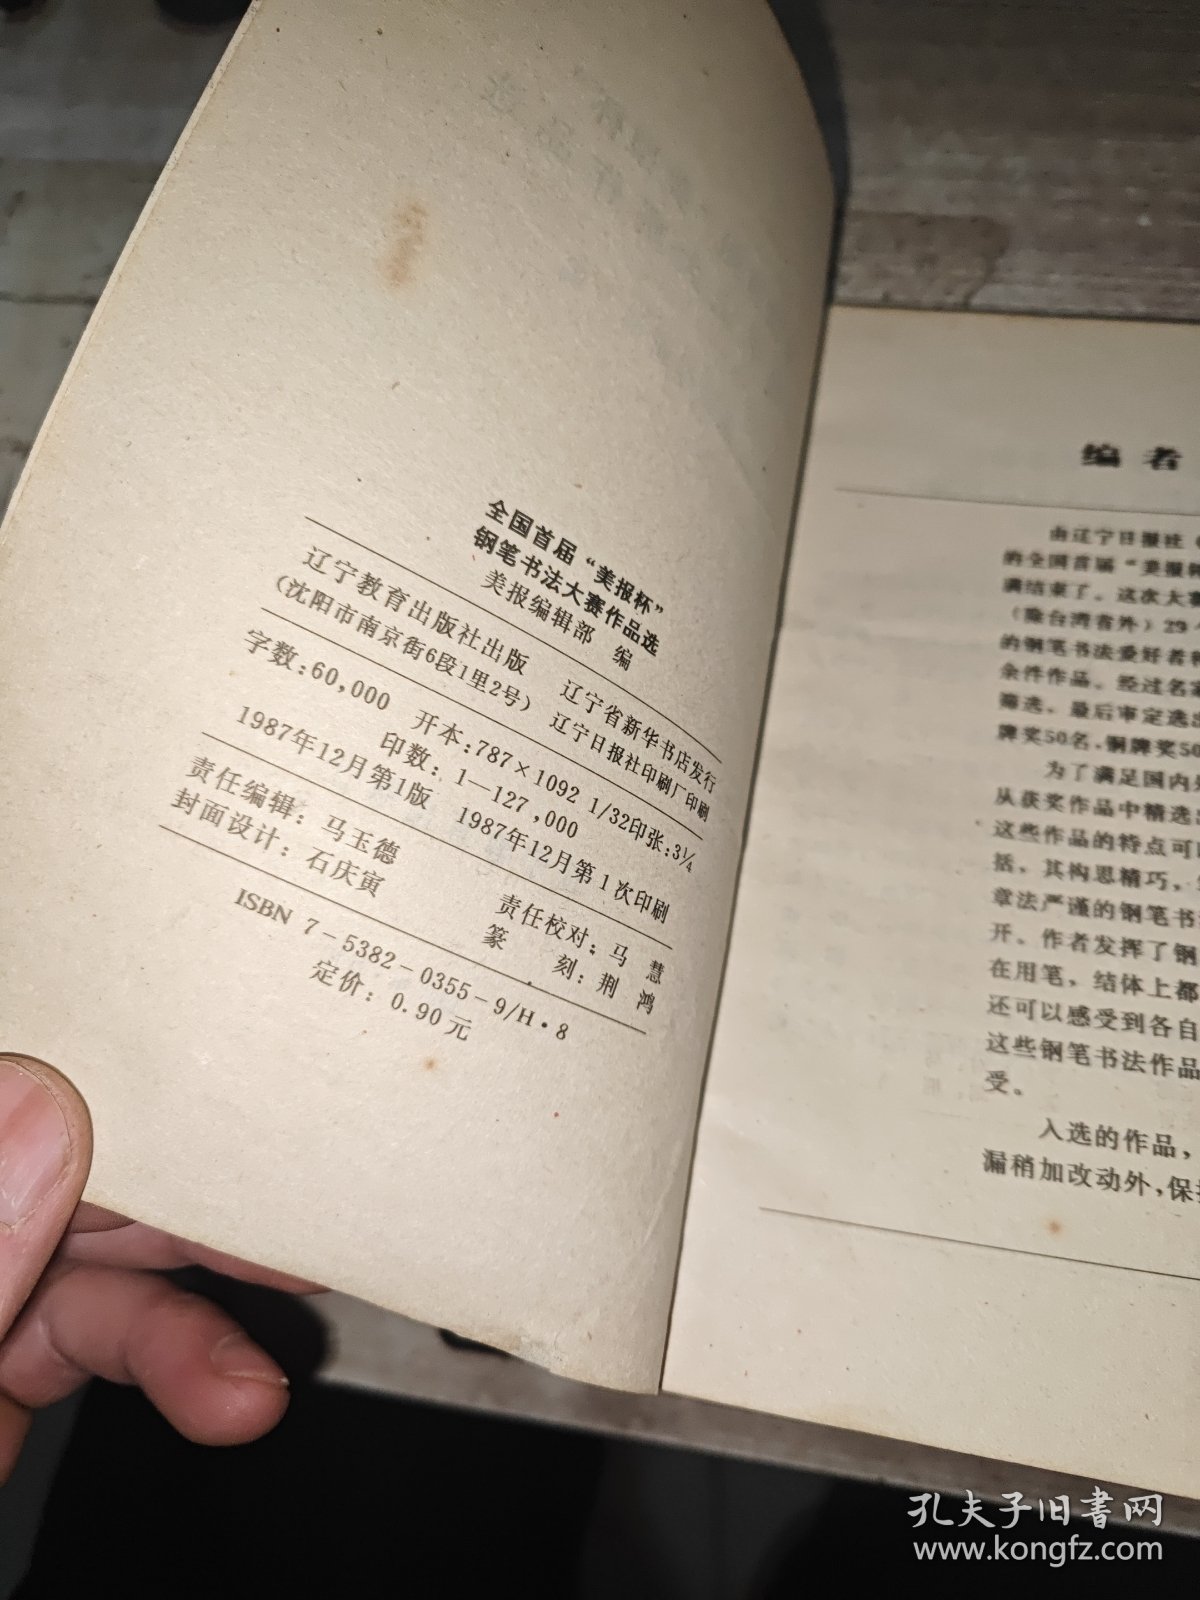 全国首届“美报杯”
钢笔书法大赛作品选
美报编辑部 编
辽宁教育出版社出版 辽宁省新华书店发行
(沈阳市南京街6段1里2号) 辽宁日报社印刷厂印刷
字数:60,000 开本:787×1092 1/32印张:3¼
印数:1—127,000
1987年12月第1版 1987年12月第1次印刷
责任编辑:马玉德 责任校对:马 慧
封面设计:石庆寅 篆 刻:荆 鸿
ISBN 7-5382-0355-9/H·8
定价:0.90元
编 者
由辽宁日报社
的全国首届“美报杯
满结束了。这次大赛
(除台湾省外)29个
的钢笔书法爱好者
余件作品。经过名家
筛选,最后审定选出
牌奖50名,铜牌奖50
为了满足国内外
从获奖作品中精选出
这些作品的特点可以
括,其构思精巧,
章法严谨的钢笔书法
开。作者发挥了钢
在用笔,结体上都
还可以感受到各自
这些钢笔书法作品
受。
入选的作品,
漏稍加改动外,保持
孔夫子旧书网
www.kongfz.com